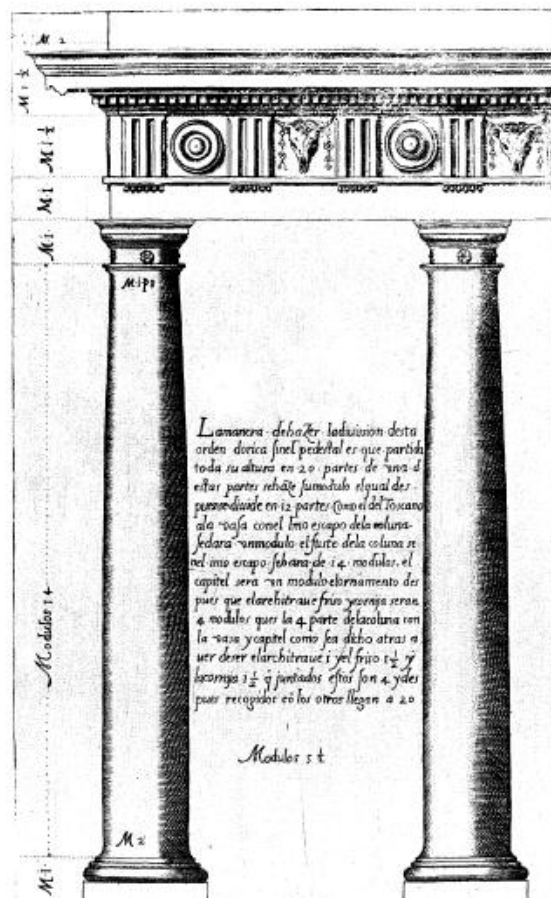 M 2
M 1 ½
M 1 ½
M 1
M 1
M 1 p 8
Lamanera dehazer ladiuision desta
orden dorica sinel pedestal es que partida
toda su altura en 20 partes de vna d
estas partes sehaze sumodulo elqual des
puessediuide en 12 partes Como el del Toscano
ala vasa conel Imo escapo dela coluna
sedara vnmodulo elfuste dela coluna si
nel imo escapo sehara de 14 modulos, el
capitel sera vn modulo elornamento des
pues que elarchitraue friso ycornija seran
4 modulos ques la 4 parte delacoluna con
la vasa y capitel como sea dicho atras a
uer deser elarchitraue 1 yel friso 1 ½ y
lacornija 1 ½ q̃ juntados estos son 4 ydes
pues recogidos cõ los otros llegan a 20
Modulos 14
Modulos 5 ½
M 2
M 1